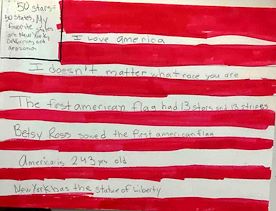 50 stars=
50 states, My
favorite states
are New York,
California, and
arizona
I love america
I doesn't matter what race you are
The first american flag had 13 stars and 13 stripes
Betsy Ross sewed the first american flag
America is 243 yrs old
New York has the statue of Liberty